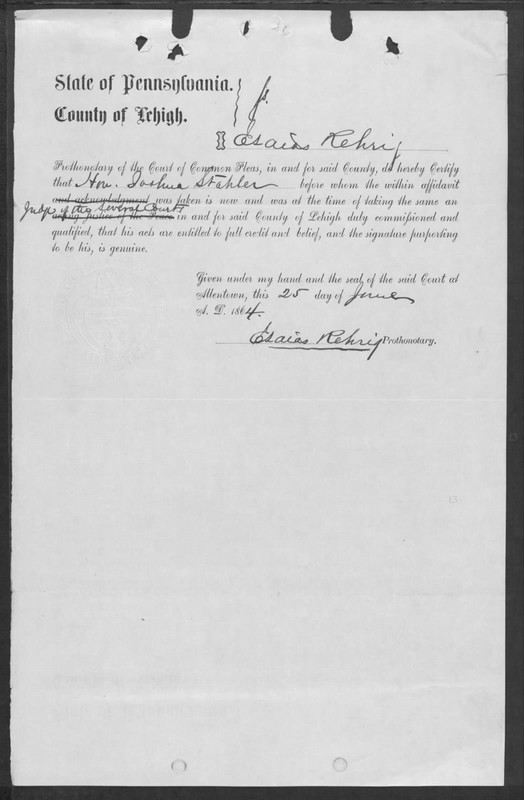 State of Pennsylvania.
County of Lehigh.
ss.
I Esaias Rehrig
Prothonotary of the Court of Common Pleas, in and for said County, do hereby Certify
that Hon. Joshua Stahler before whom the within affidavit
and acknowledgment was taken is now and was at the time of taking the same an
Judge of the several Courts
acting Justice of the Peace in and for said County of Lehigh duly commissioned and
qualified, that his acts are entitled to full credit and belief, and the signature purporting
to be his, is genuine.
Given under my hand and the seal of the said Court at
Allentown, this 25 day of June
A. D. 1864.
Esaias Rehrig Prothonotary.